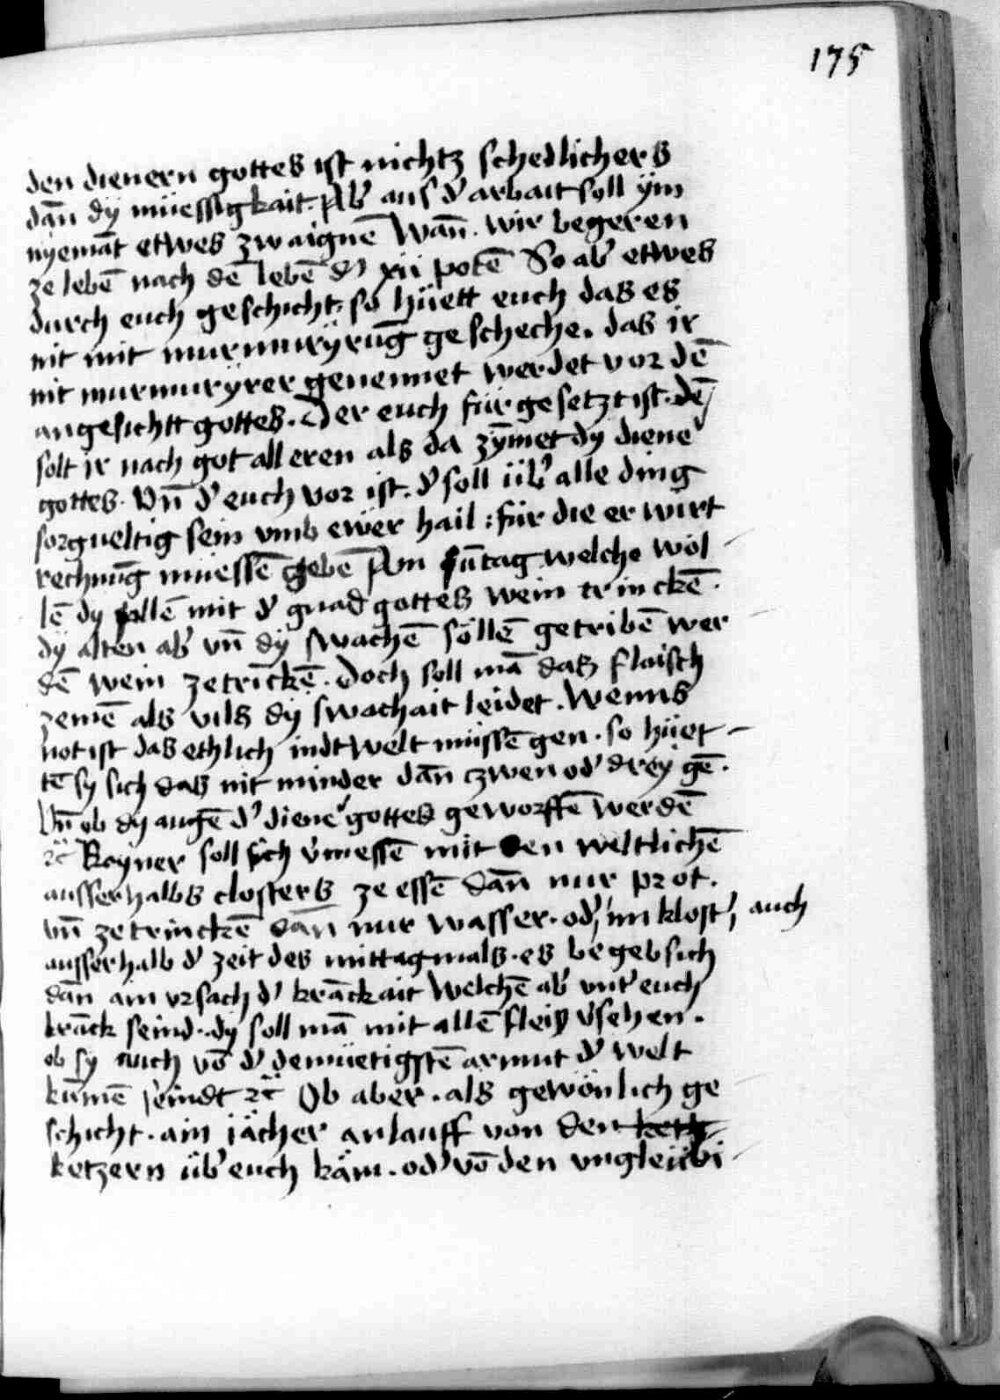 175
den dienern gottes ist nichtz schedlichers
dañ dÿ müessigkait. Ab' aus d' arbait soll ÿm
nyemāt etwes zw aignē Wañ. wir begeren
ze lebē nach dē lebē d' xii potē So ab' etwes
durch euch geschicht. so hüett euch das es
nit mit murmurÿrūg gescheche. das ir
nit murmurÿrer genennet werdet vor dē
angesichtt gottes. Der euch für gesetzt ist. dē
solt ir nach got all eren als da zÿmet dÿ diene'
gottes. Vn̄ d' euch vor ist. d' soll üb' alle ding
sorgueltig sein vmb ewer hail: für die er wirt
rechnūg müessē gebē Am sūtag welche wöl
lē dy sollē mit d' gnad gottes wein trinckē.
dÿ alten ab' vn̄ dÿ swachē söllē getribē wer
dē wein zetrīckē. Doch soll mā das flaisch
zemē als vils dÿ swachait leidet. Wenns
not ist das ethlich indt welt müssē gen. so hüet
tē sy sich das nit minder dañ zwen od' dreÿ gē.
Vn̄ ob dy augē d' diene' gottes geworffē werdē
⁊c̄ Kayner soll sich v'messē mit den weltlichē
ausserhalbs closters ze essē dañ nur prot.
vn̄ ze trinckē dañ nur wasser. od' im klost' auch
ausserhalb d' zeit des mittagmals. es begeb sich
dañ ain vrsach d' krāckait Welchē ab' vnt' euch
krāck seind. dÿ soll mā mit allē fleiß v'sehen.
ob sy auch vō d' demüetigstē armut d' welt
kūmē seindt ⁊c̄ Ob aber. als gewönlich ge
schicht. ain jächer anlauff von den keth
ketzern üb' euch käm. od' vō den vngleiubi